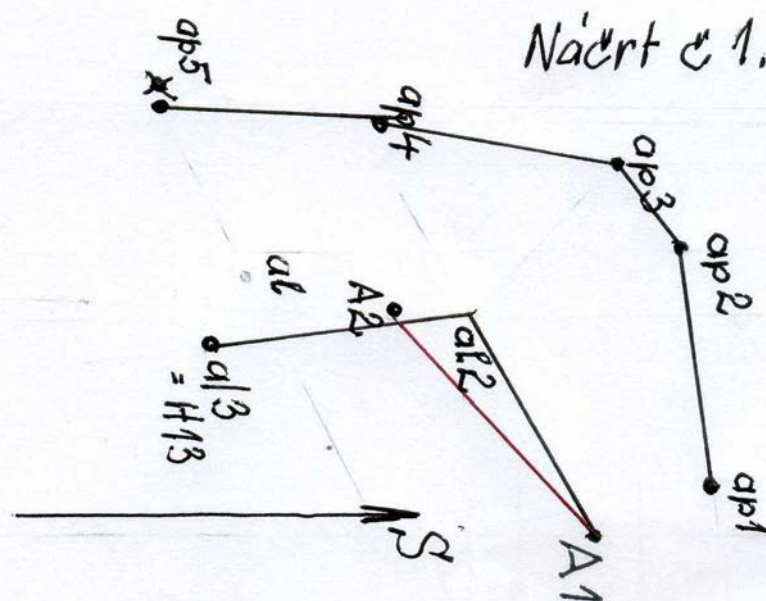 Náčrt č 1.
ap5
ap4
ap3
ap2
ap1
al
A2
al2
al3
= H13
A1
S